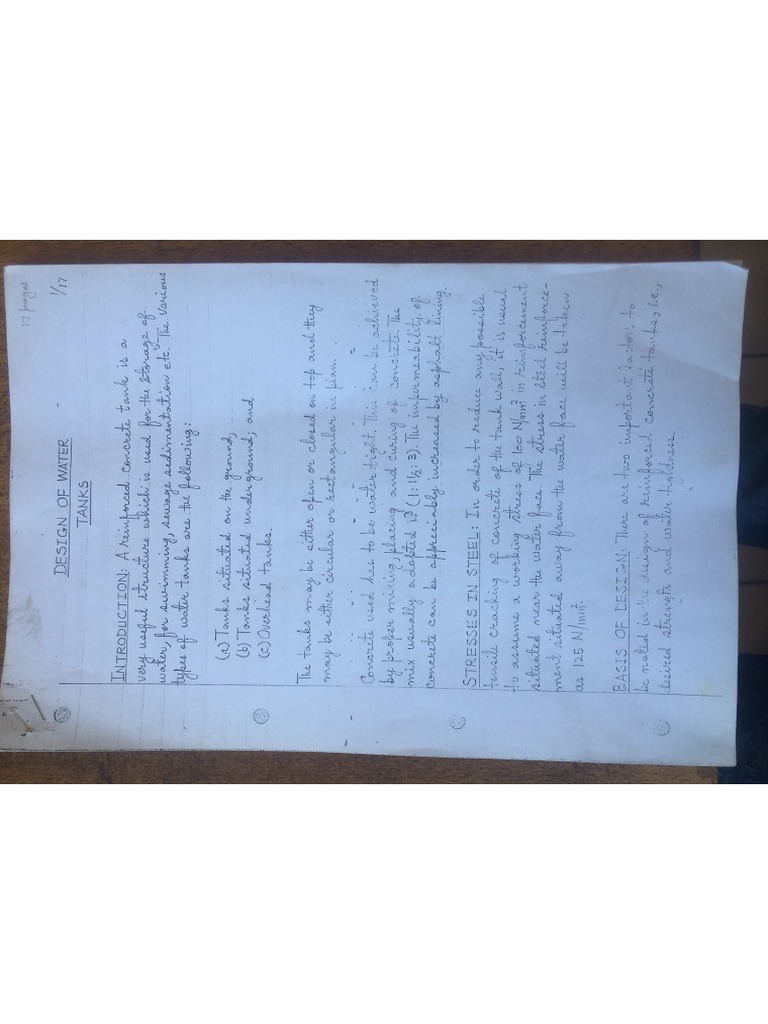 17 pages
1/17
DESIGN OF WATER
TANKS
INTRODUCTION: A reinforced concrete tank is a
very useful structure which is used for the storage of
water, for swimming, sewage sedimentation etc. The various
types of water tanks are the following:
(a) Tanks situated on the ground,
(b) Tanks situated under ground, and
(c) Overhead tanks.
The tanks may be either open or closed on top and they
may be either circular or rectangular in plan.
Concrete used has to be water tight. This can be achieved
by proper mixing, placing and curing of concrete. The
mix usually adopted is (1:1½:3). The impermeability of
concrete can be appreciably increased by asphalt lining.
STRESSES IN STEEL: In order to reduce any possible
tensile cracking of concrete of the tank wall, it is usual
to assume a working stress of 100 N/mm² in reinforcement
situated near the water face. The stress in steel reinforce-
ment situated away from the water face will be taken
as 125 N/mm².
BASIS OF DESIGN: There are two important factors to
be noted in the design of reinforced concrete tanks, i.e,
desired strength and water tightness.